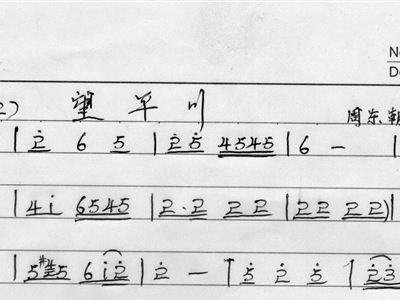 No
Da
2) 望平川 周东朝
| 2̇ 6 5 | 2̇ 5̇ 4545 | 6 – |
| 4 i̇ 6545 | 2·2 22 | 22 22) |
| 5#45 6 i̇2̇ | 2̇ – | 5̇ 2̇ 5̇ | 2̇3̇